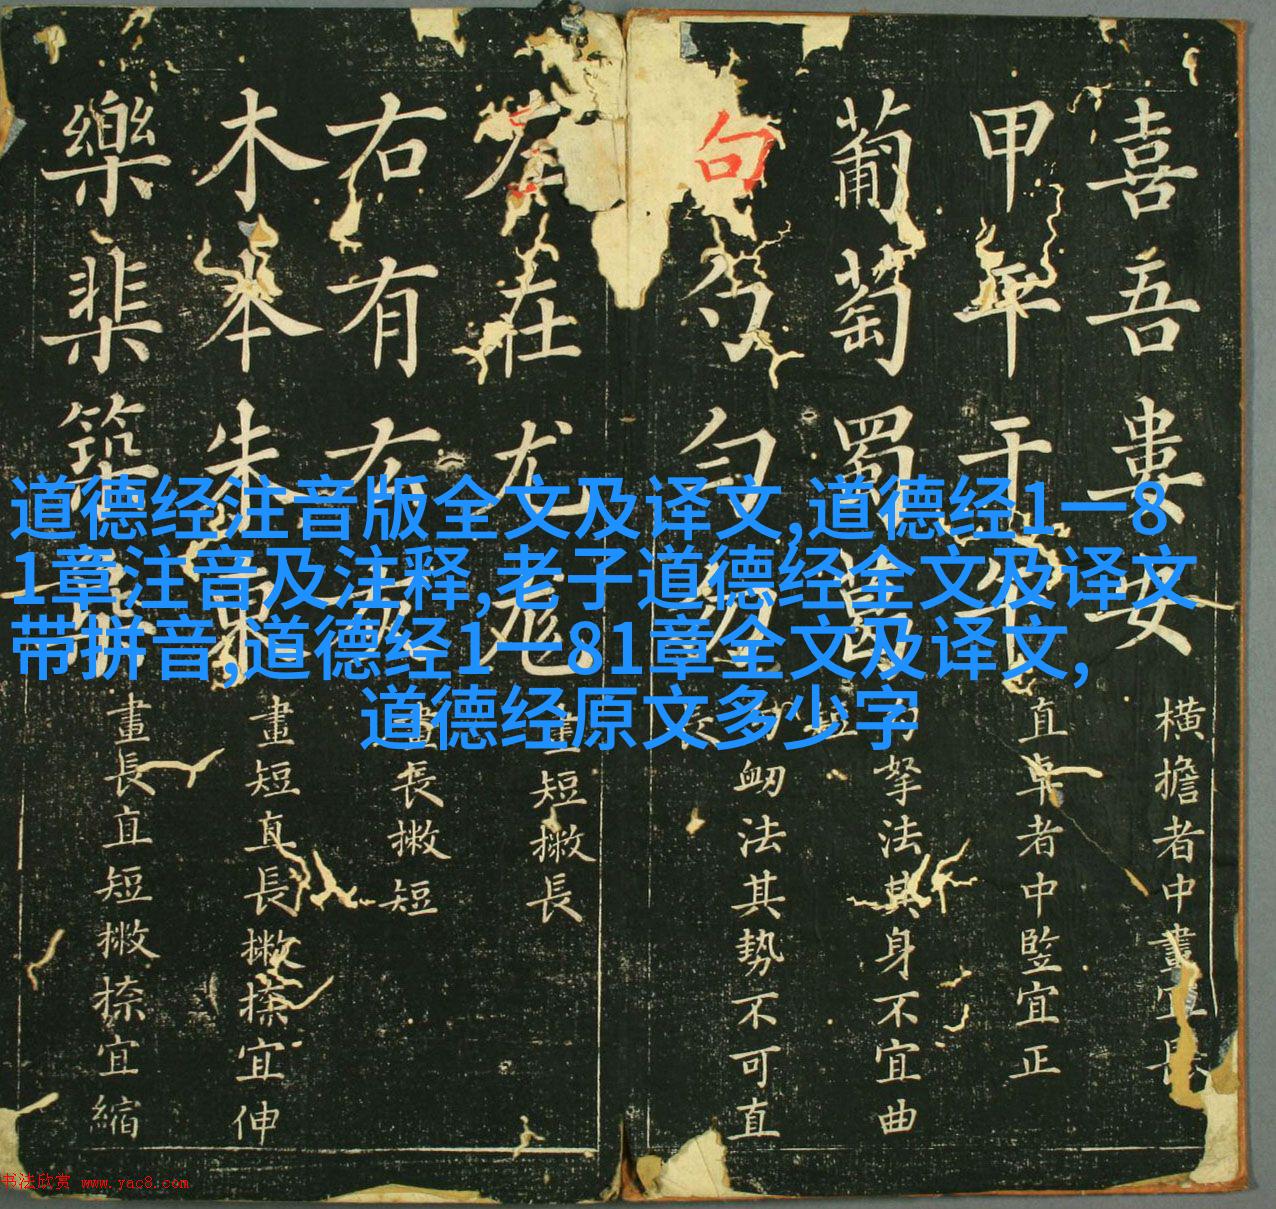 喜吾婁安
橫擔者中畫宜長
甲平干午
直卓者中監宜正
葡萄蜀葛
拏法其身不宜曲
句勺勻勿
法其勢不可直
左在尤尨
畫短撇長
右有
畫長撇短
木本朱
畫短直長撇捺宜伸
樂棐築
畫長直短撇捺宜縮
道德经注音版全文及译文,道德经1一8
1章注音及注释,老子道德经全文及译文
带拼音,道德经1一81章全文及译文,
道德经原文多少字
书法欣赏 www.yac8.com